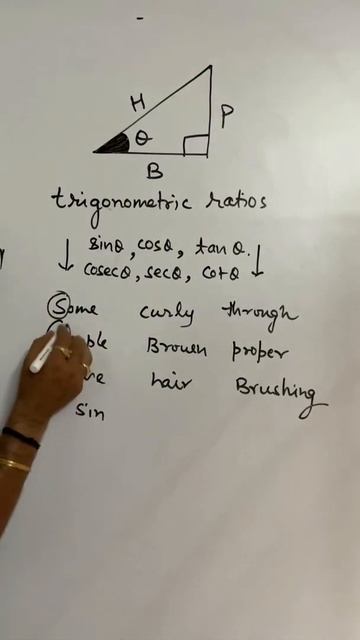 H
θ
P
B
trigonometric ratios
sinθ, cosθ, tanθ.
cosecθ, secθ, cotθ
Some curly through
Brown proper
hair Brushing
sin